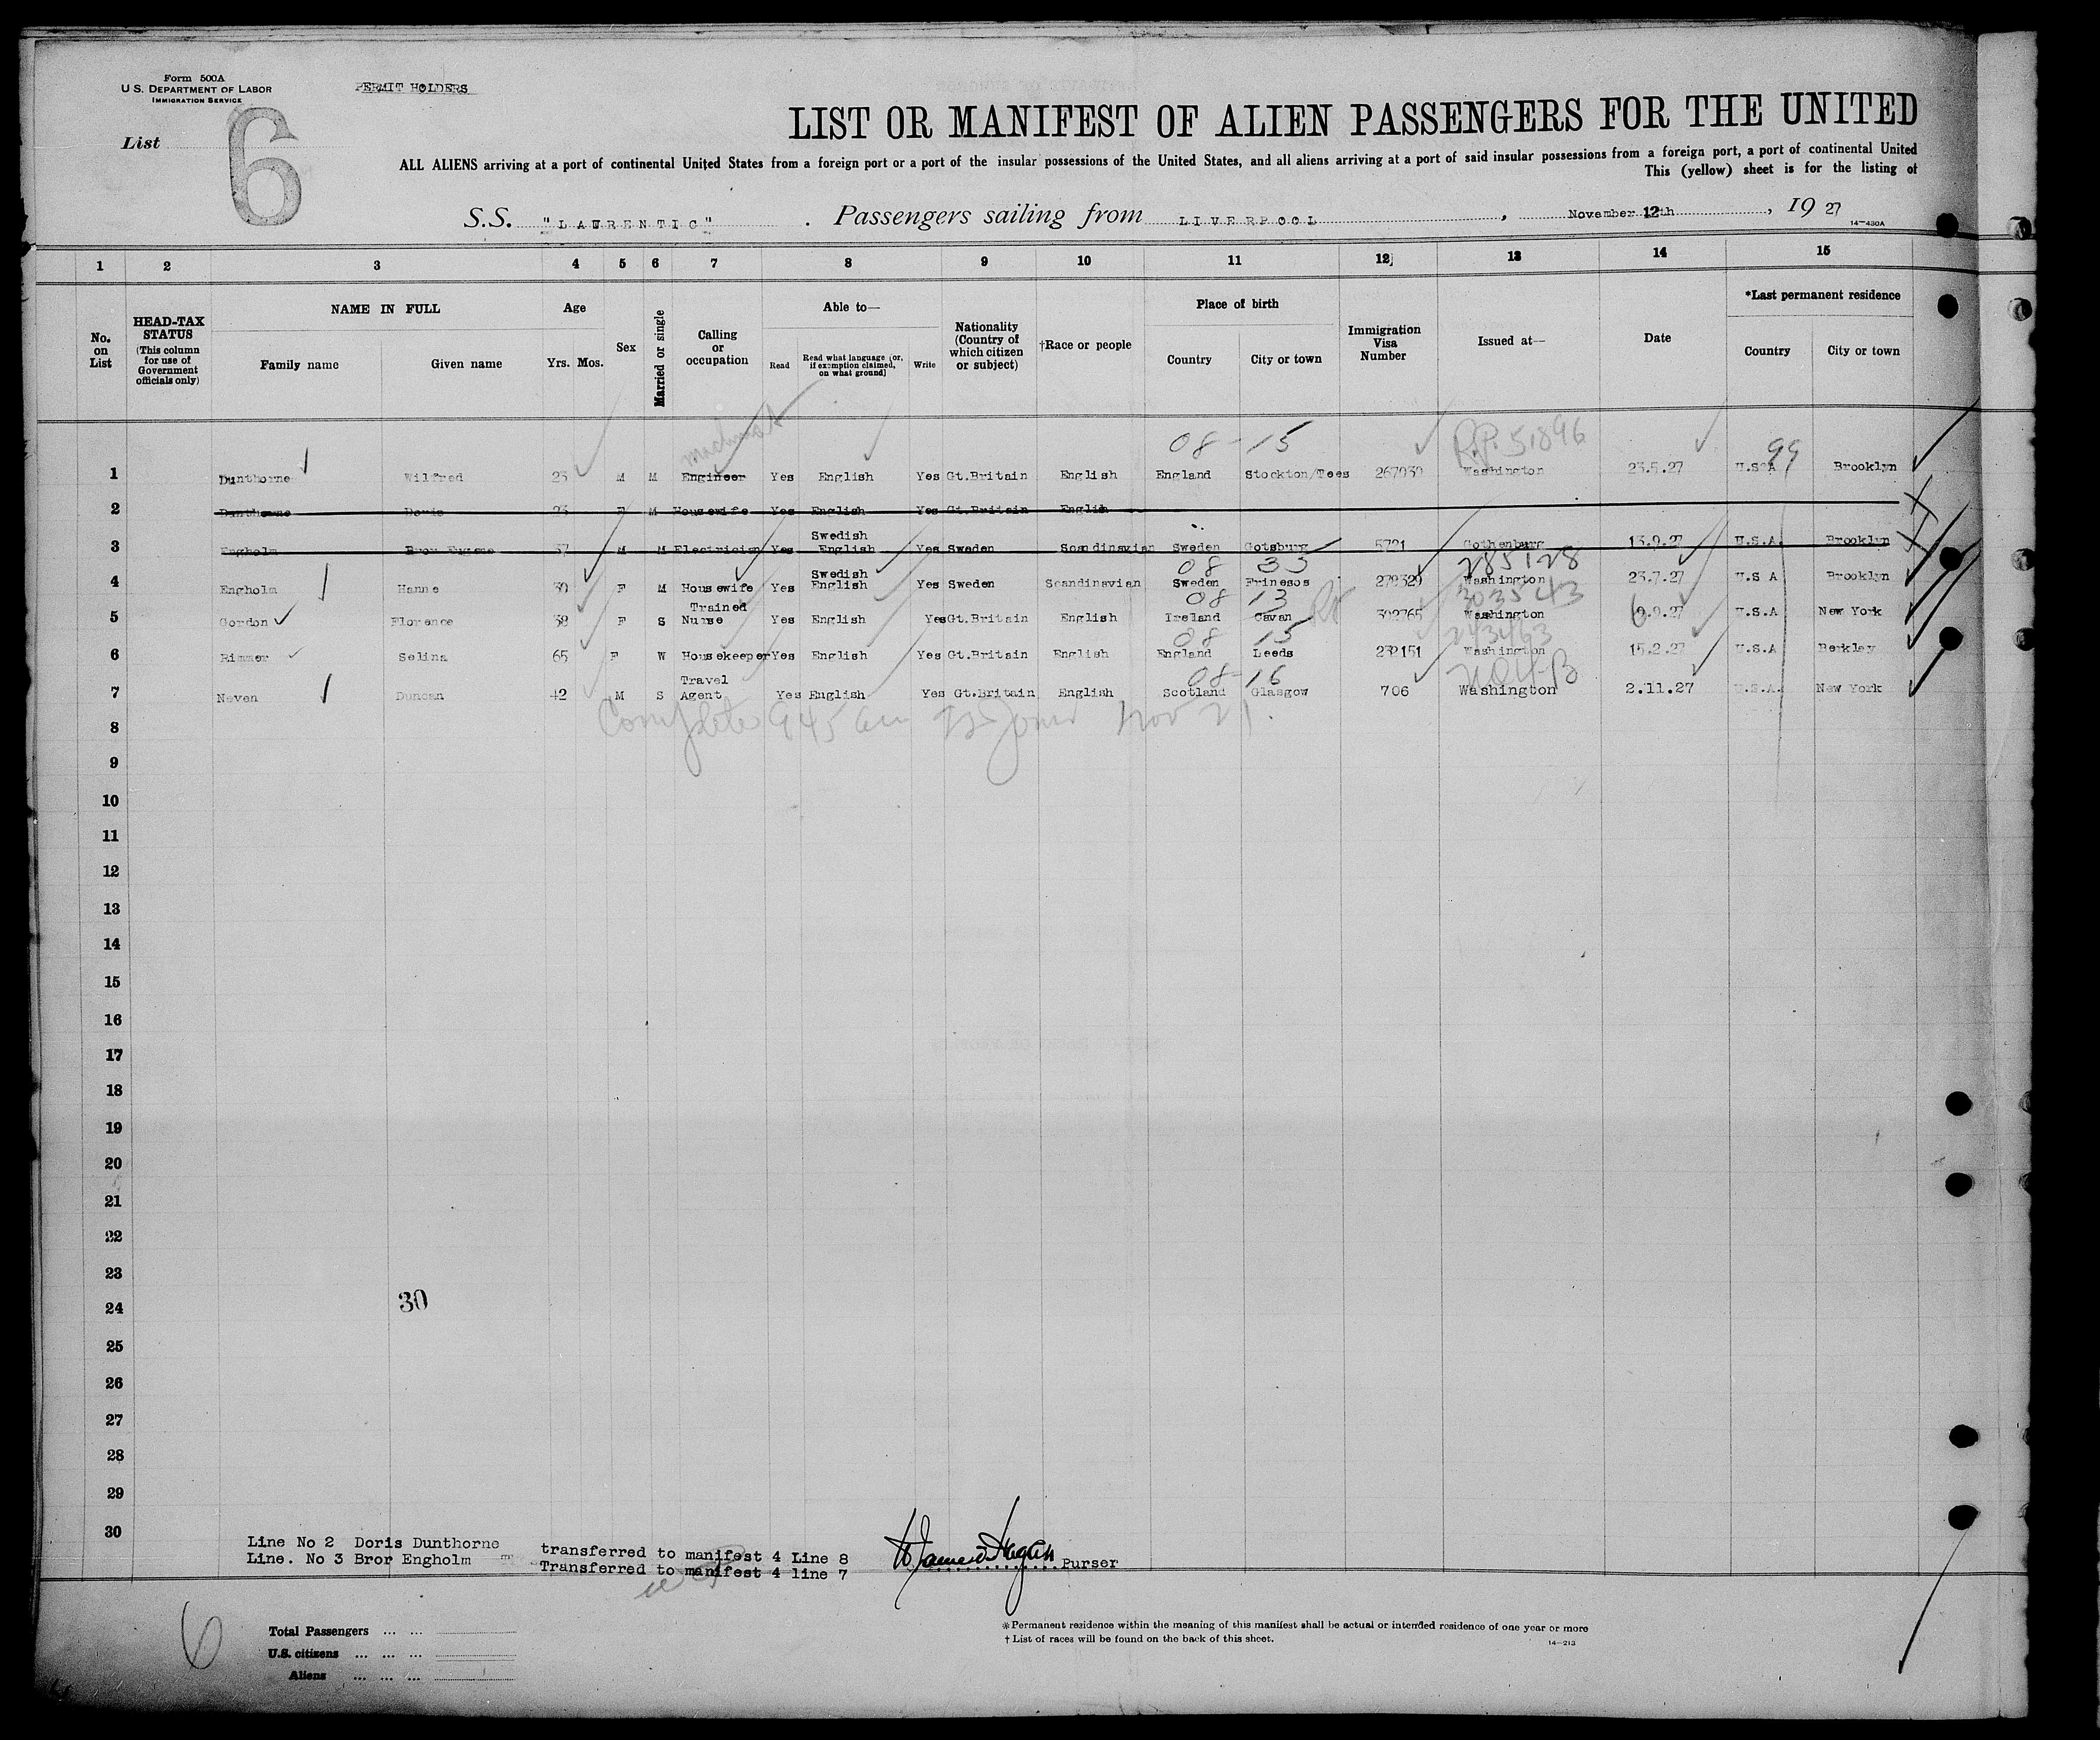 Form 500A
U.S. DEPARTMENT OF LABOR
IMMIGRATION SERVICE
PERMIT HOLDERS
List 6
LIST OR MANIFEST OF ALIEN PASSENGERS FOR THE UNITED
ALL ALIENS arriving at a port of continental United States from a foreign port or a port of the insular possessions of the United States, and all aliens arriving at a port of said insular possessions from a foreign port, a port of continental United
This (yellow) sheet is for the listing of
S.S. "LAURENTIC" . Passengers sailing from LIVERPOOL , November 12th , 19 27
14-430A
1 2 3 4 5 6 7 8 9 10 11 12 13 14 15
No. on List
HEAD-TAX STATUS (This column for use of Government officials only)
NAME IN FULL
Family name Given name
Age
Yrs. Mos.
Sex
Married or single
Calling or occupation
Able to—
Read
Read what language (or, if exemption claimed, on what ground)
Write
Nationality (Country of which citizen or subject)
†Race or people
Place of birth
Country City or town
Immigration Visa Number
Issued at—
Date
*Last permanent residence
Country City or town
machinist 08-15 R.P. 51896 99
1 Dunthorne Wilfred 23 M M Engineer Yes English Yes Gt.Britain English England Stockton/Tees 267030 Washington 23.5.27 U.S A Brooklyn
2 Dunthorne Doris 23 F M Housewife Yes English Yes Gt.Britain English
Swedish
3 Engholm Bror Eugene 37 M M Electrician Yes English Yes Sweden Scandinavian Sweden Gotsburg 5721 Gothenburg 13.9.27 U.S.A. Brooklyn
Swedish 08 33 285128
4 Engholm Hanne 30 F M Housewife Yes English Yes Sweden Scandinavian Sweden Frinesos 279329 Washington 23.7.27 U.S A Brooklyn
Trained 08 13 303543
5 Gordon Florence 38 F S Nurse Yes English Yes Gt.Britain English Ireland Cavan 302765 Washington 9.9.27 U.S.A New York
08 15 243463
6 Rimmer Selina 65 F W Housekeeper Yes English Yes Gt.Britain English England Leeds 232151 Washington 15.2.27 U.S.A Berkley
Travel 08-16
7 Neven Duncan 42 M S Agent Yes English Yes Gt.Britain English Scotland Glasgow 706 Washington 2.11.27 U.S.A. New York
Complete 945 am Nov 21.
8
9
10
11
12
13
14
15
16
17
18
19
20
21
22
23
24 30
25
26
27
28
29
30
Line No 2 Doris Dunthorne transferred to manifest 4 Line 8
Line. No 3 Bror Engholm Transferred to manifest 4 line 7
Purser
6
Total Passengers ... ...
U.S. citizens ... ... ...
Aliens ... ... ...
*Permanent residence within the meaning of this manifest shall be actual or intended residence of one year or more
† List of races will be found on the back of this sheet.
14-213